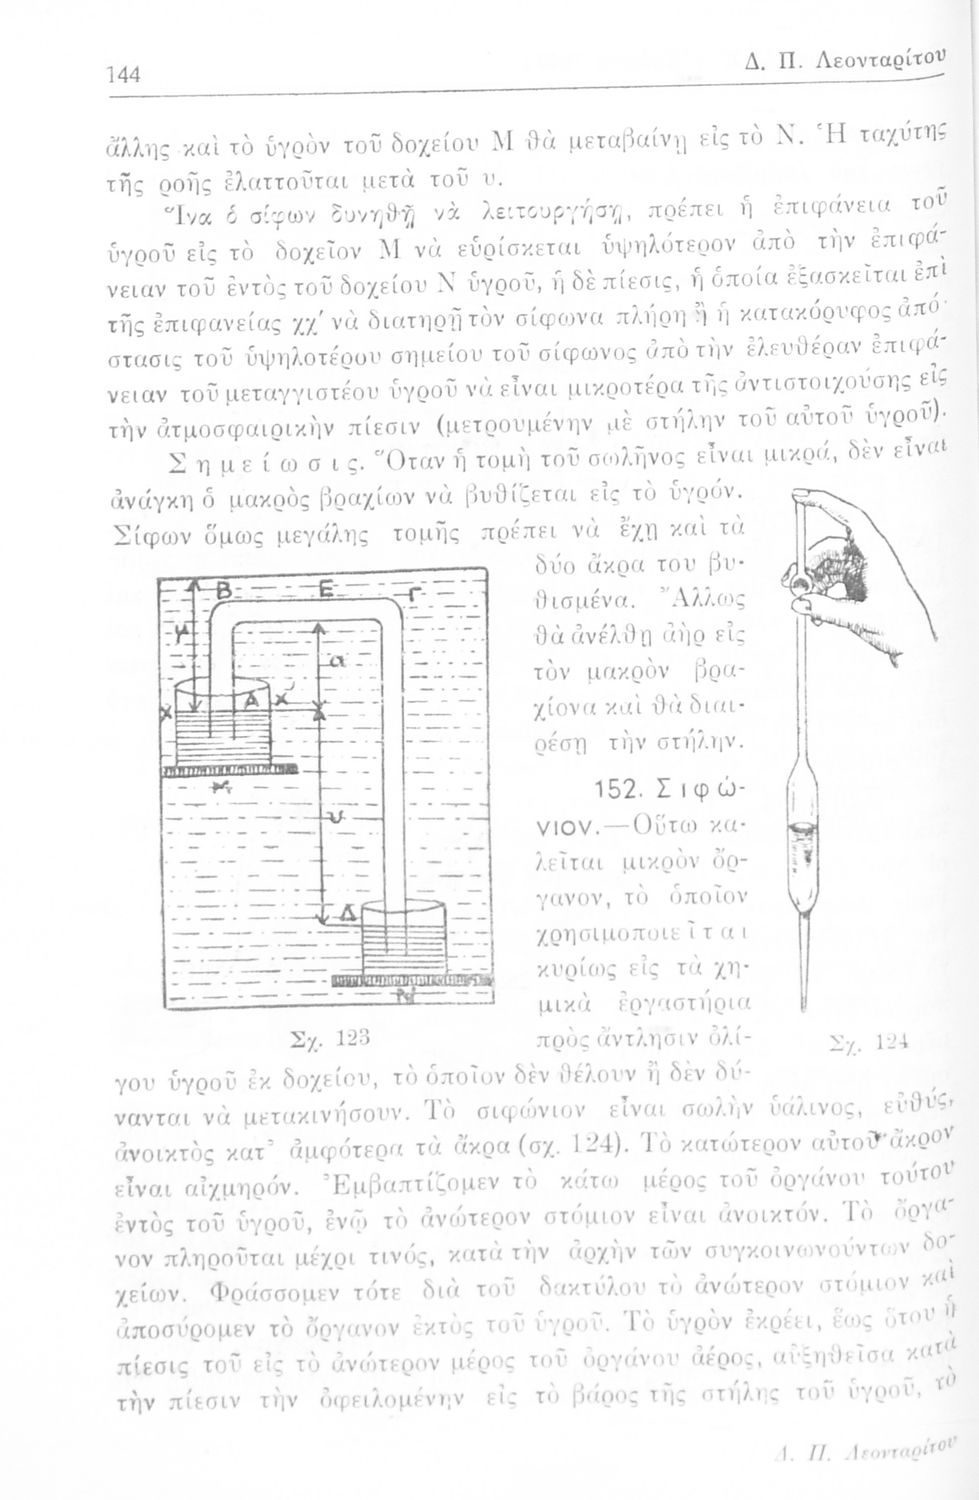 144
Δ. Π. Λεονταρίτου
ἄλλης καὶ τὸ ὑγρὸν τοῦ δοχείου Μ θὰ μεταβαίνῃ εἰς τὸ Ν. Ἡ ταχύτης
τῆς ροῆς ἐλαττοῦται μετὰ τοῦ υ.
Ἵνα ὁ σίφων δυνηθῇ νὰ λειτουργήσῃ, πρέπει ἡ ἐπιφάνεια τοῦ
ὑγροῦ εἰς τὸ δοχεῖον Μ νὰ εὑρίσκεται ὑψηλότερον ἀπὸ τὴν ἐπιφά-
νειαν τοῦ ἐντὸς τοῦ δοχείου Ν ὑγροῦ, ἡ δὲ πίεσις, ἡ ὁποία ἐξασκεῖται ἐπὶ
τῆς ἐπιφανείας χχ' νὰ διατηρῇ τὸν σίφωνα πλήρη ἢ ἡ κατακόρυφος ἀπό-
στασις τοῦ ὑψηλοτέρου σημείου τοῦ σίφωνος ἀπὸ τὴν ἐλευθέραν ἐπιφά-
νειαν τοῦ μεταγγιστέου ὑγροῦ νὰ εἶναι μικροτέρα τῆς ἀντιστοιχούσης εἰς
τὴν ἀτμοσφαιρικὴν πίεσιν (μετρουμένην μὲ στήλην τοῦ αὐτοῦ ὑγροῦ).
Σημείωσις. Ὅταν ἡ τομὴ τοῦ σωλῆνος εἶναι μικρά, δὲν εἶναι
ἀνάγκη ὁ μακρὸς βραχίων νὰ βυθίζεται εἰς τὸ ὑγρόν.
Σίφων ὅμως μεγάλης τομῆς πρέπει νὰ ἔχῃ καὶ τὰ
δύο ἄκρα του βυ-
θισμένα. Ἄλλως
θὰ ἀνέλθῃ ἀὴρ εἰς
τὸν μακρὸν βρα-
χίονα καὶ θὰ διαι-
ρέσῃ τὴν στήλην.
Β Ε Γ
α
Χ Α Χ'
υ
Δ
Σχ. 123
152. Σιφώ-
νιον.—Οὕτω κα-
λεῖται μικρὸν ὄρ-
γανον, τὸ ὁποῖον
χρησιμοποιεῖται
κυρίως εἰς τὰ χη-
μικὰ ἐργαστήρια
πρὸς ἄντλησιν ὀλί-
Σχ. 124
γου ὑγροῦ ἐκ δοχείου, τὸ ὁποῖον δὲν θέλουν ἢ δὲν δύ-
νανται νὰ μετακινήσουν. Τὸ σιφώνιον εἶναι σωλὴν ὑάλινος, εὐθύς,
ἀνοικτὸς κατ' ἀμφότερα τὰ ἄκρα (σχ. 124). Τὸ κατώτερον αὐτοῦ ἄκρον
εἶναι αἰχμηρόν. Ἐμβαπτίζομεν τὸ κάτω μέρος τοῦ ὀργάνου τούτου
ἐντὸς τοῦ ὑγροῦ, ἐνῷ τὸ ἀνώτερον στόμιον εἶναι ἀνοικτόν. Τὸ ὄργα-
νον πληροῦται μέχρι τινός, κατὰ τὴν ἀρχὴν τῶν συγκοινωνούντων δο-
χείων. Φράσσομεν τότε διὰ τοῦ δακτύλου τὸ ἀνώτερον στόμιον καὶ
ἀποσύρομεν τὸ ὄργανον ἐκτὸς τοῦ ὑγροῦ. Τὸ ὑγρὸν ἐκρέει, ἕως ὅτου ἡ
πίεσις τοῦ εἰς τὸ ἀνώτερον μέρος τοῦ ὀργάνου ἀέρος, αὐξηθεῖσα κατὰ
τὴν πίεσιν τὴν ὀφειλομένην εἰς τὸ βάρος τῆς στήλης τοῦ ὑγροῦ, τὸ
Δ. Π. Λεονταρίτου